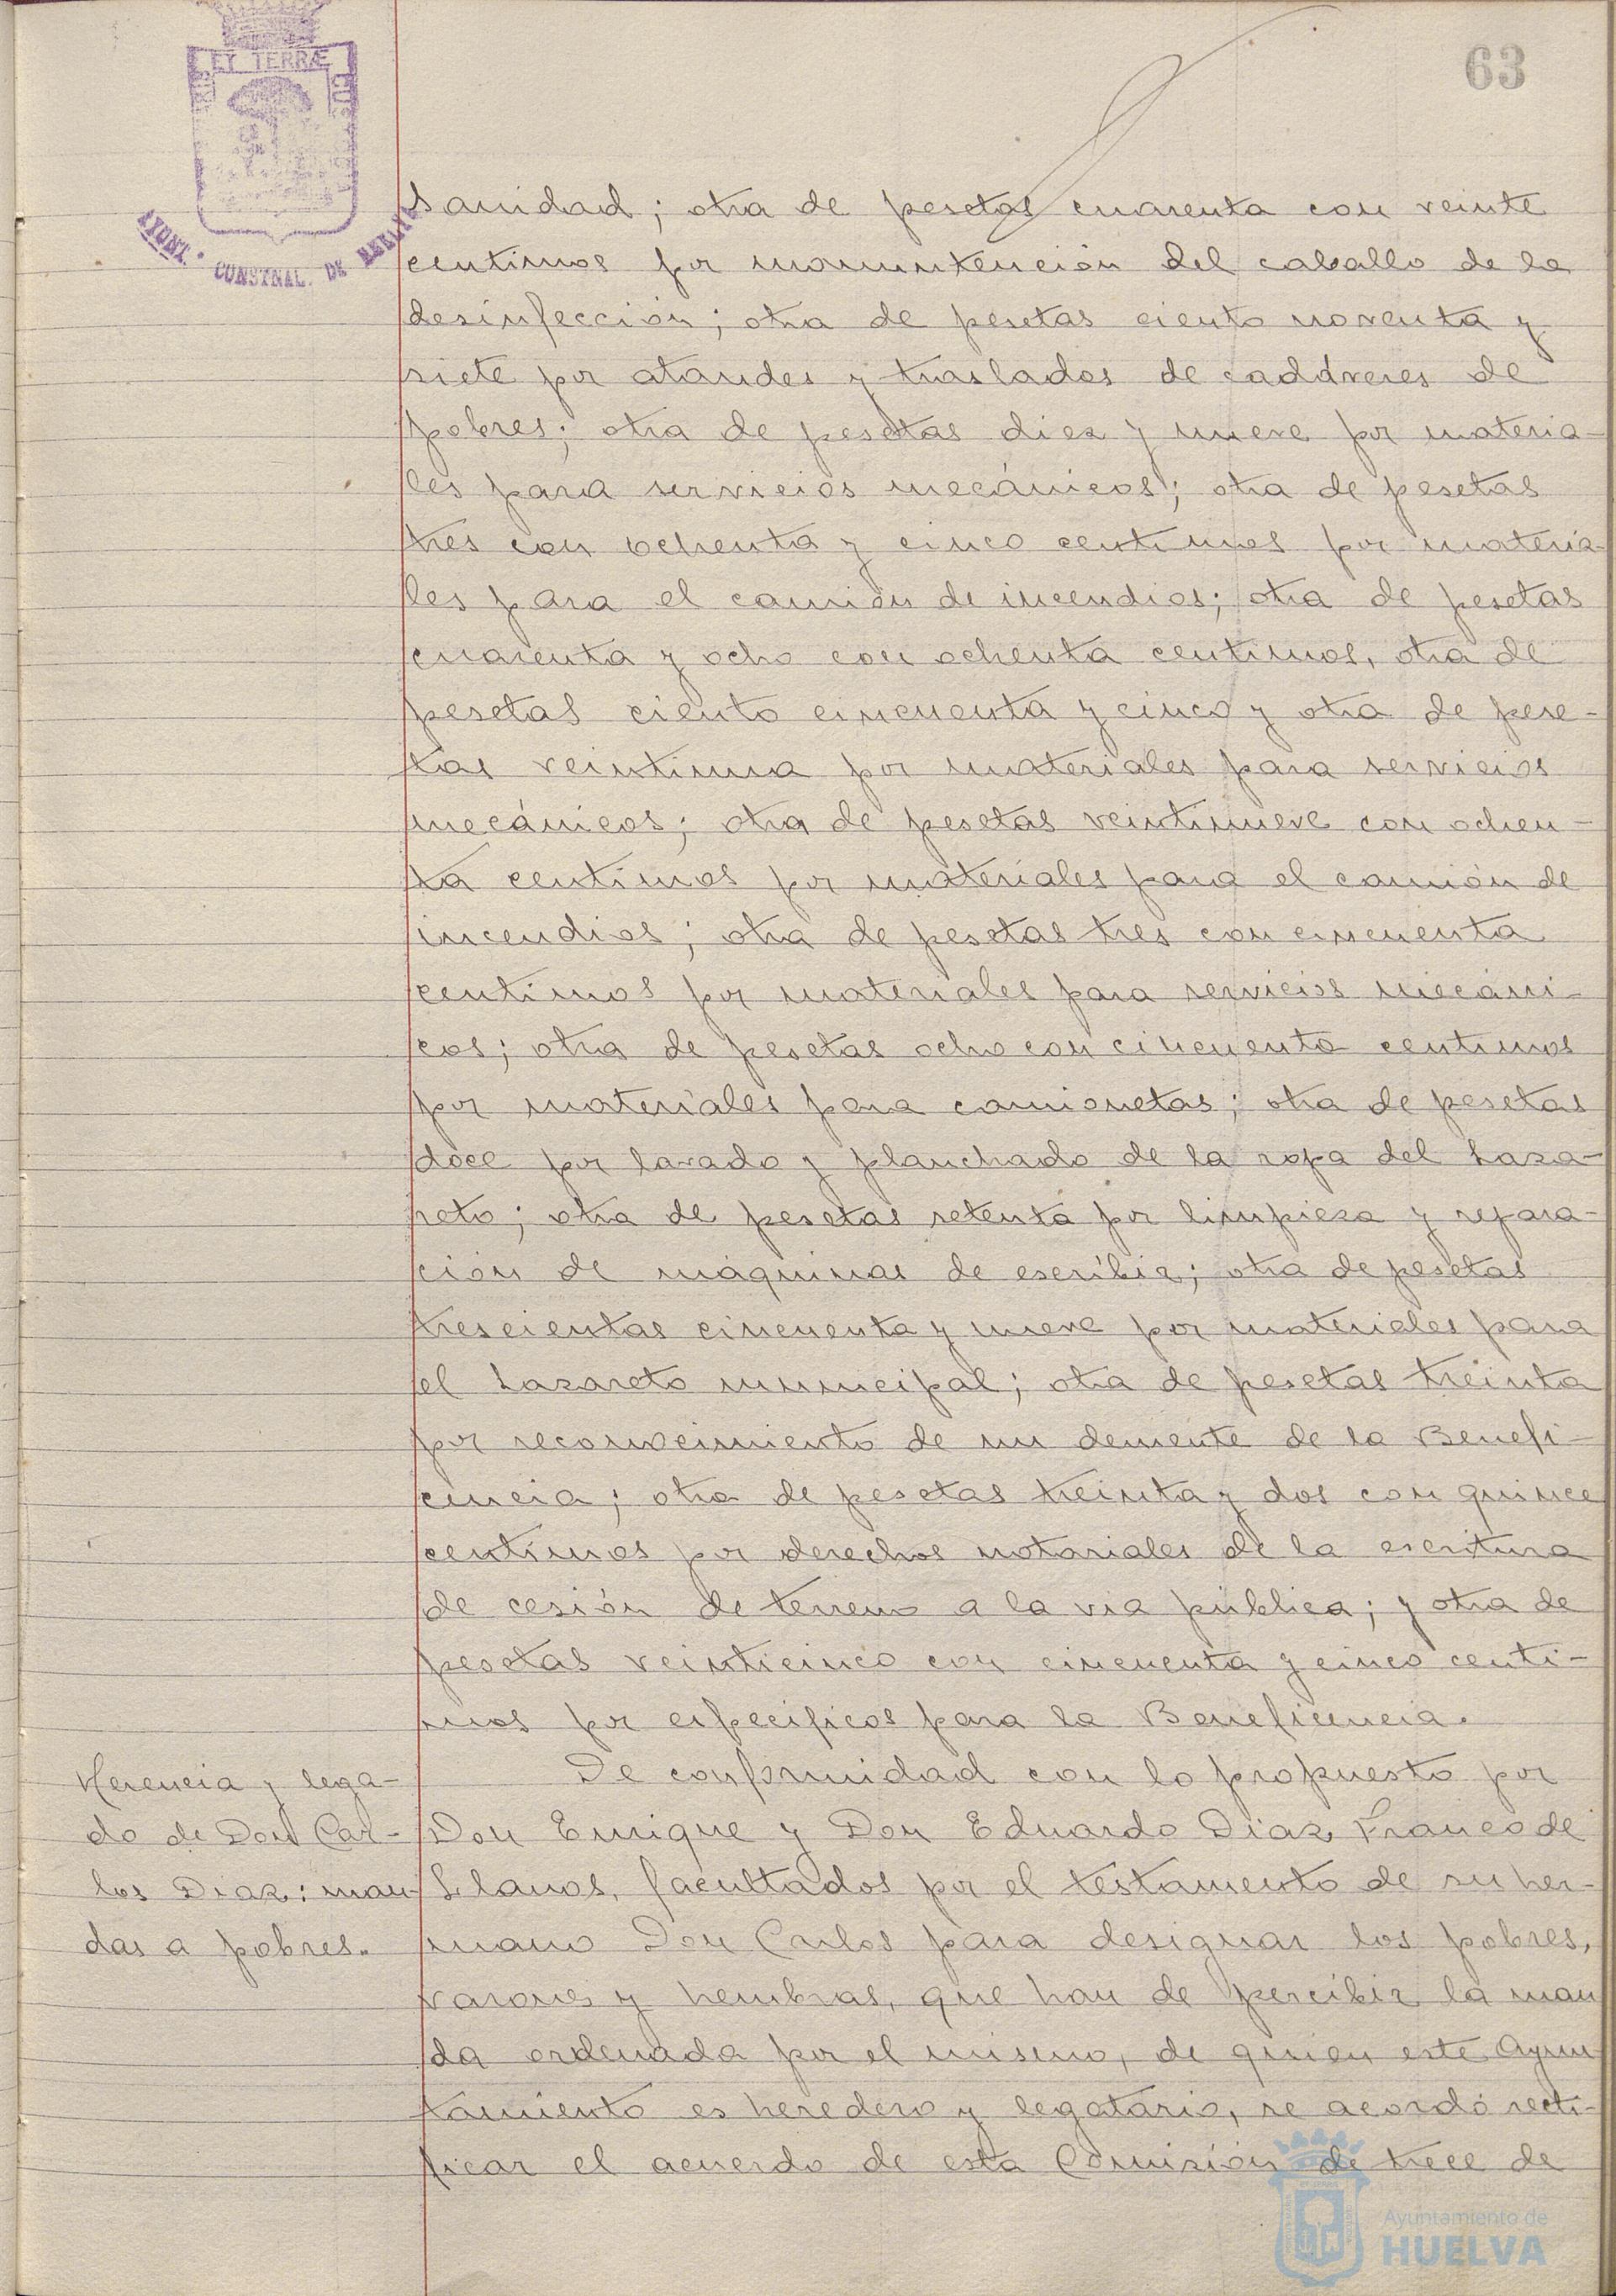 63
ET TERRÆ
CUS
AYUNT. CONSTNAL. DE HUELVA
Sanidad; otra de pesetas cuarenta con veinte
centimos por manuntención del caballo de la
desinfección; otra de pesetas ciento noventa y
siete por ataudes y traslados de cadáveres de
pobres; otra de pesetas diez y nueve por materia-
les para servicios mecánicos; otra de pesetas
tres con ochenta y cinco centimos por materia-
les para el camión de incendios; otra de pesetas
cuarenta y ocho con ochenta centimos, otra de
pesetas ciento cincuenta y cinco y otra de pese-
tas veintiuna por materiales para servicios
mecánicos; otra de pesetas veintinueve con ochen-
ta centimos por materiales para el camión de
incendios; otra de pesetas tres con cincuenta
centimos por materiales para servicios mecáni-
cos; otra de pesetas ocho con cincuenta centimos
por materiales para camionetas; otra de pesetas
doce por lavado y planchado de la ropa del Laza-
reto; otra de pesetas setenta por limpieza y repara-
ción de máquinas de escribir; otra de pesetas
trescientas cincuenta y nueve por materiales para
el Lazareto municipal; otra de pesetas treinta
por reconocimiento de un demente de la Benefi-
cencia; otra de pesetas treinta y dos con quince
centimos por derechos notariales de la escritura
de cesión de terreno a la via pública; y otra de
pesetas veinticinco con cincuenta y cinco centi-
mos por especificos para la Beneficencia.
Herencia y lega-
do de Don Car-
los Diaz: man-
das a pobres.
De conformidad con lo propuesto por
Don Enrique y Don Eduardo Diaz Franco de
Llanos, facultados por el testamento de su her-
mano Don Carlos para designar los pobres,
varones y hembras, que han de percibir la man
da ordenada por el mismo, de quien este Ayun
tamiento es heredero y legatario, se acordó recti-
ficar el acuerdo de esta Comisión de trece de
Ayuntamiento de
HUELVA